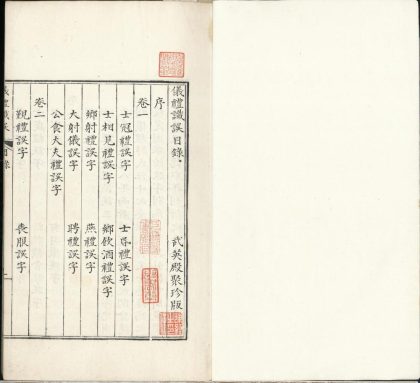 儀禮識誤目錄
武英殿聚珍版
序
卷一
士冠禮誤字　士昏禮誤字
士相見禮誤字　鄉飲酒禮誤字
鄉射禮誤字　燕禮誤字
大射儀誤字　聘禮誤字
公食大夫禮誤字
卷二
覲禮誤字　喪服誤字